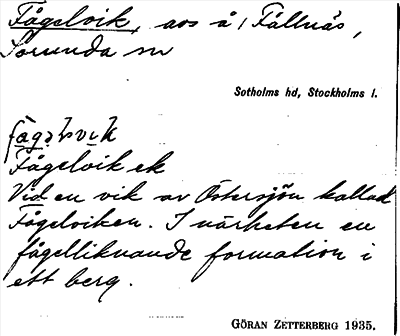 Fågelvik, aos å / Fållnäs,
Sorunda sn
Sotholms hd, Stockholms l.
Fågelvik ek
Vid en vik av Östersjön kallad
Fågelviken. I närheten en
fågelliknande formation i
ett berg.
GÖRAN ZETTERBERG 1935.